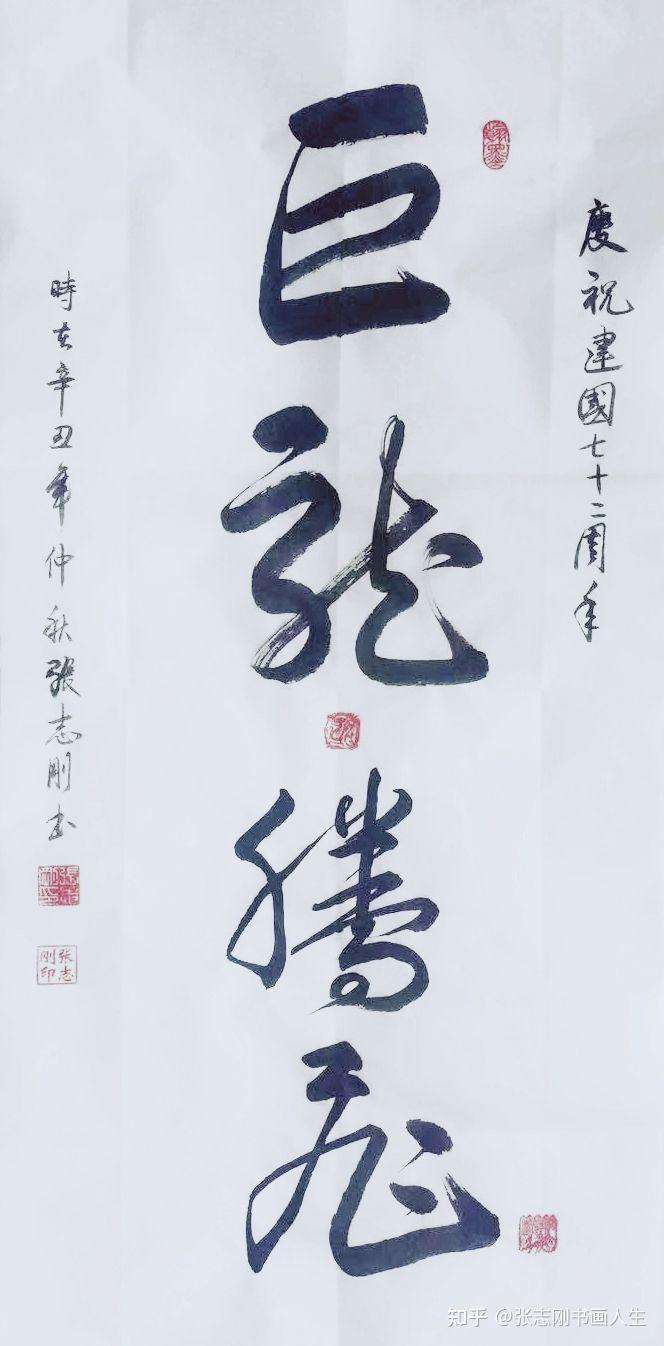 慶祝建國七十二周年
巨龍騰飛
時在辛丑年仲秋張志剛書
张志刚印
知乎 @张志刚书画人生